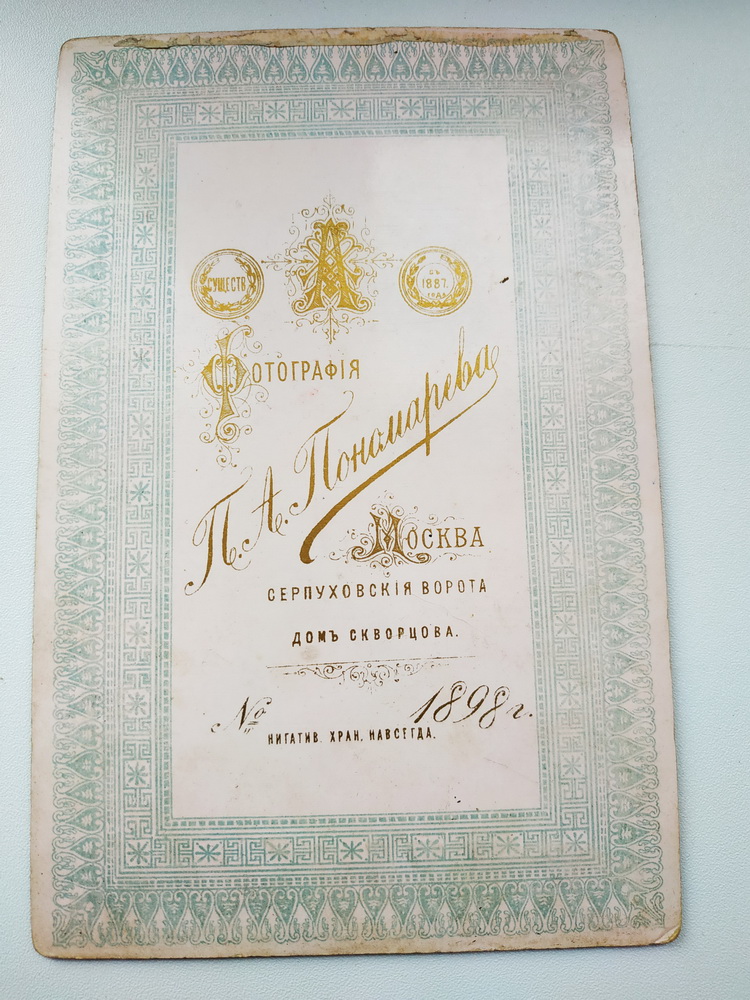 А
СУЩЕСТВ.
СЪ
1887.
ГОДА
ФОТОГРАФІЯ
П. А. Пономарева
МОСКВА
СЕРПУХОВСКІЯ ВОРОТА
ДОМЪ СКВОРЦОВА.
№ 1898 г.
НИГАТИВ. ХРАН. НАВСЕГДА.